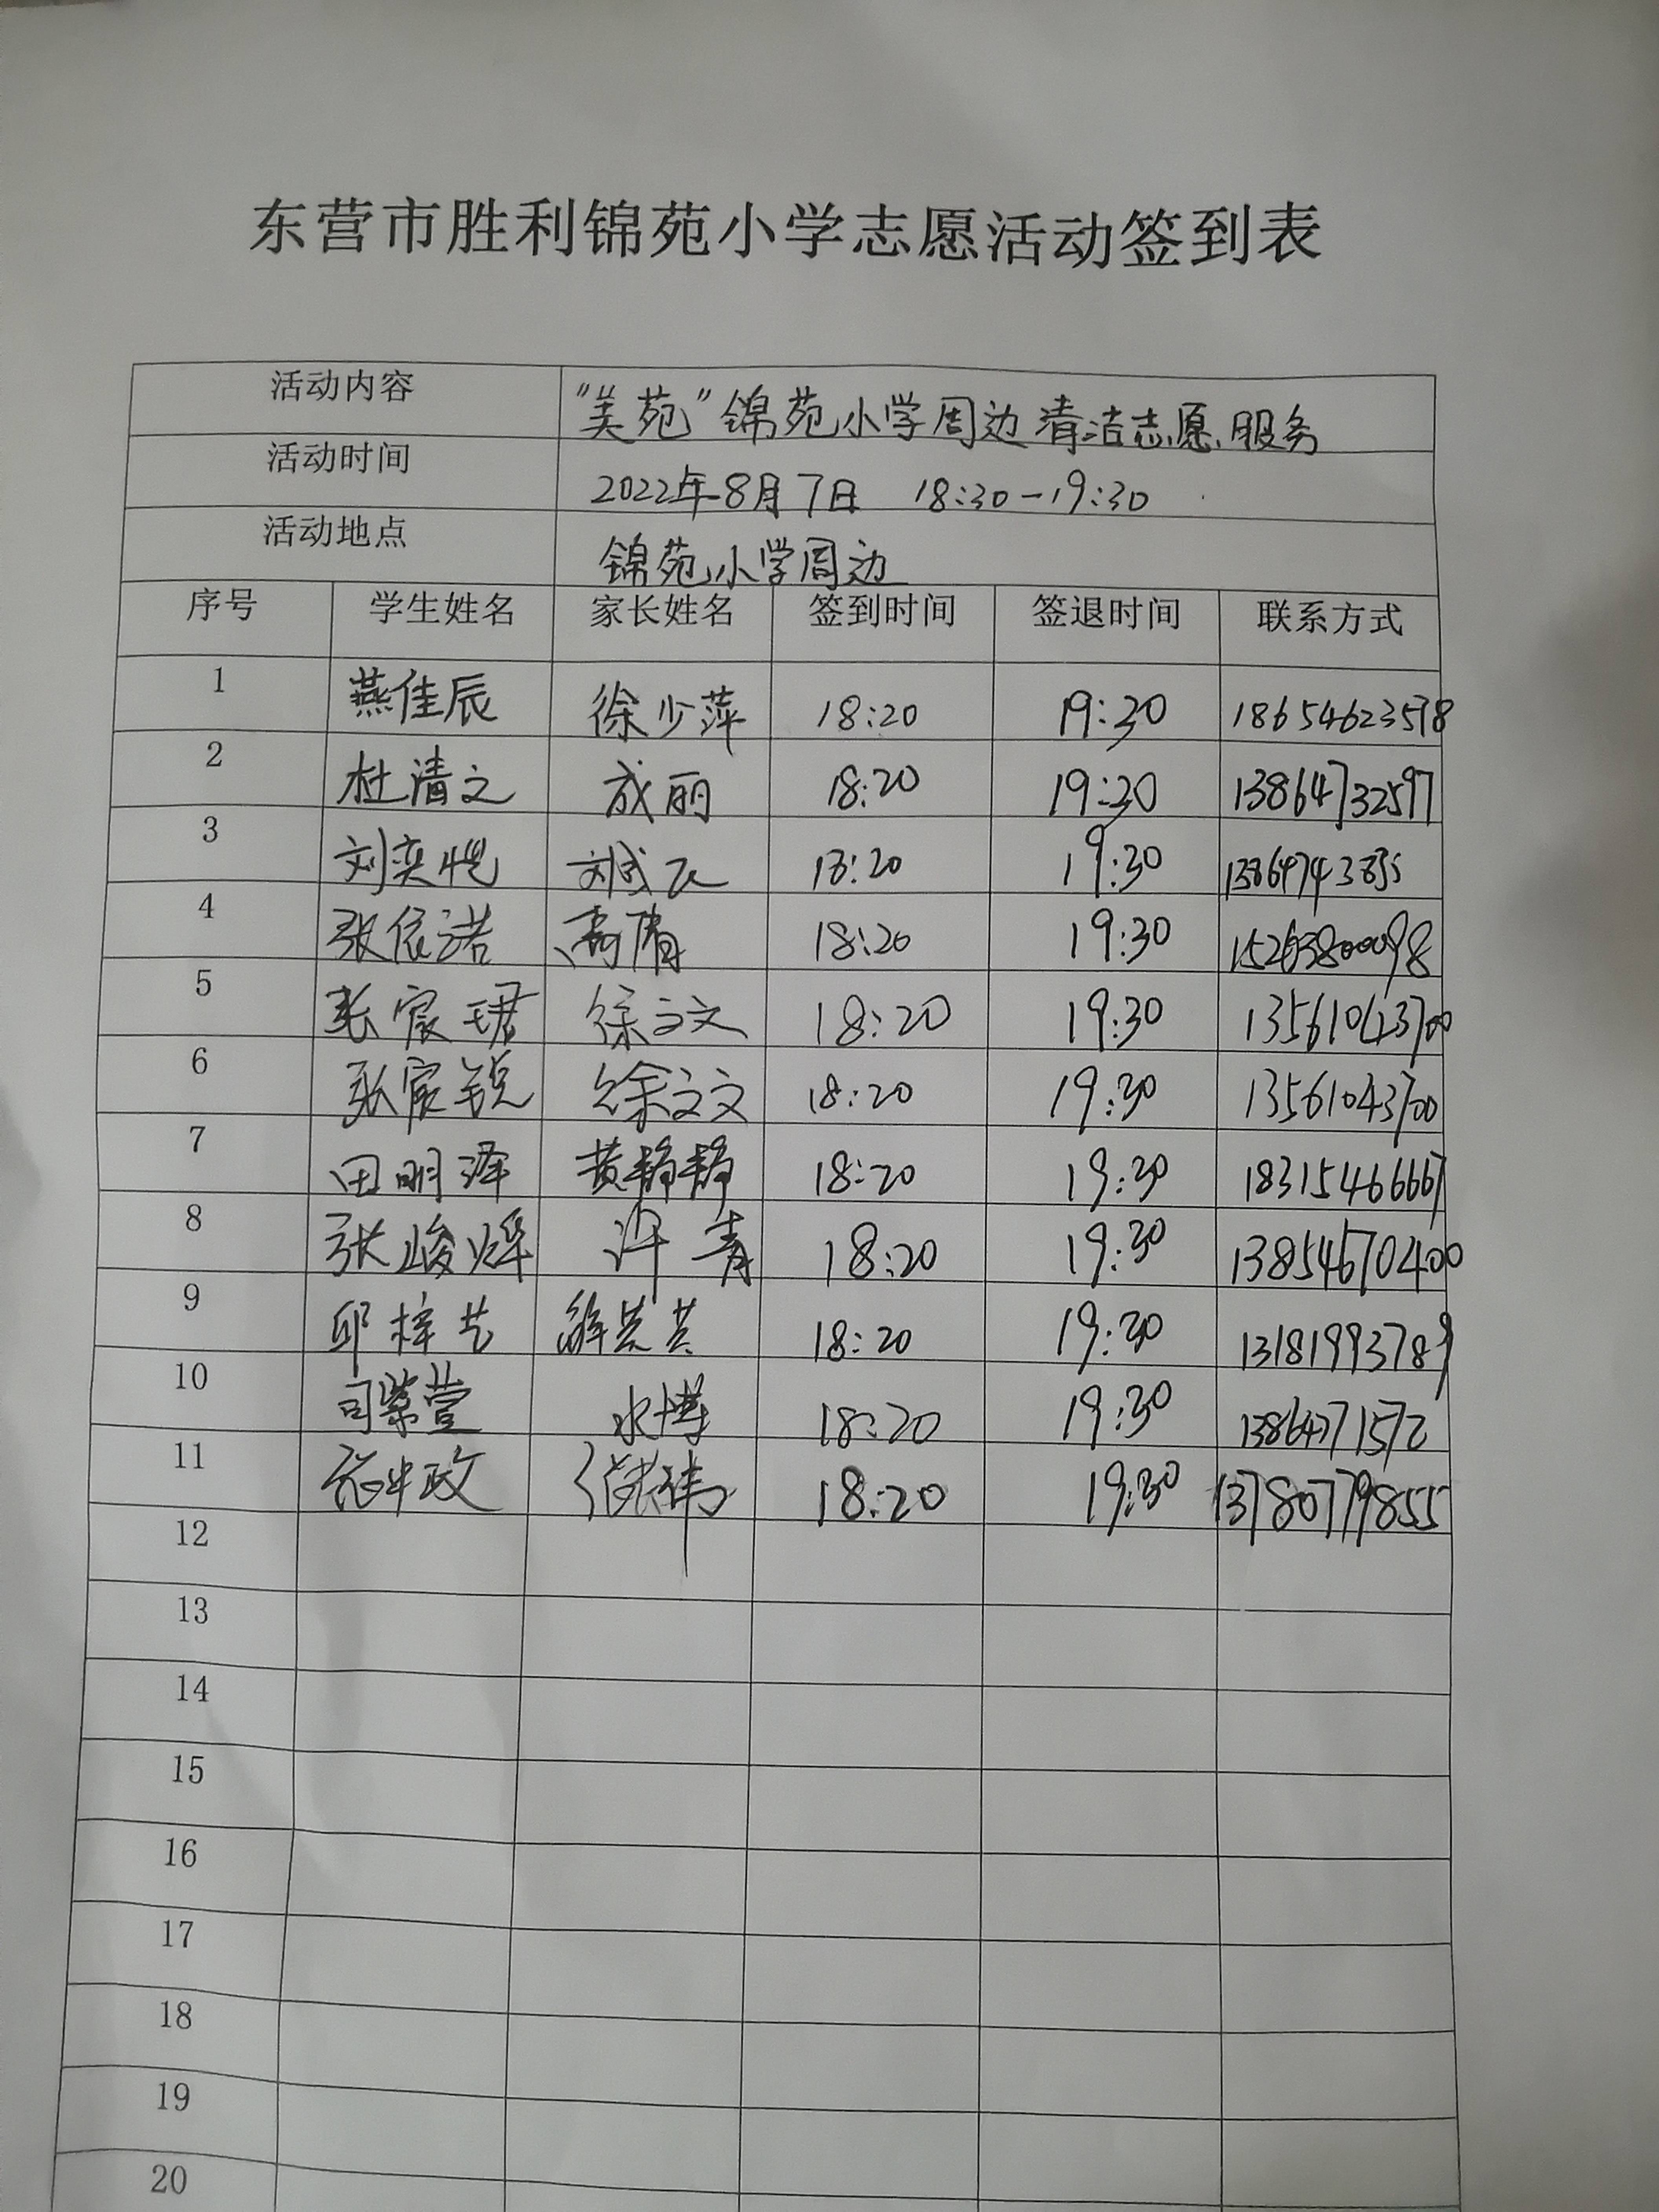 东营市胜利锦苑小学志愿活动签到表
活动内容 "美苑"锦苑小学周边清洁志愿服务
活动时间 2022年8月7日 18:30-19:30
活动地点 锦苑小学周边
序号 学生姓名 家长姓名 签到时间 签退时间 联系方式
1 燕佳辰 徐少萍 18:20 19:30 18654623598
2 杜清文 成丽 18:20 19:30 13864732597
3 刘奕恺 18:20 19:30
4 张依诺 高倩 18:20 19:30 15263800098
5 张宸珺 徐文文 18:20 19:30 13561043700
6 张宸锐 徐文文 18:20 19:30 13561043700
7 田明泽 黄静静 18:20 19:30 18315466667
8 张峻烨 许青 18:20 19:30 13854670400
9 邱梓艺 18:20 19:30 13181993789
10 司紫萱 水博 18:20 19:30 13864771572
11 18:20 19:30 13780779855
12
13
14
15
16
17
18
19
20